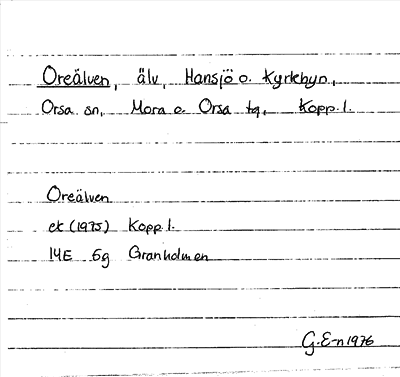 Oreälven, älv, Hansjö o. Kyrkbyn,
Orsa sn, Mora o Orsa tg, Kopp. l.
Oreälven
ek (1975) Kopp l.
14E 6g Granholmen
G. E-n 1976